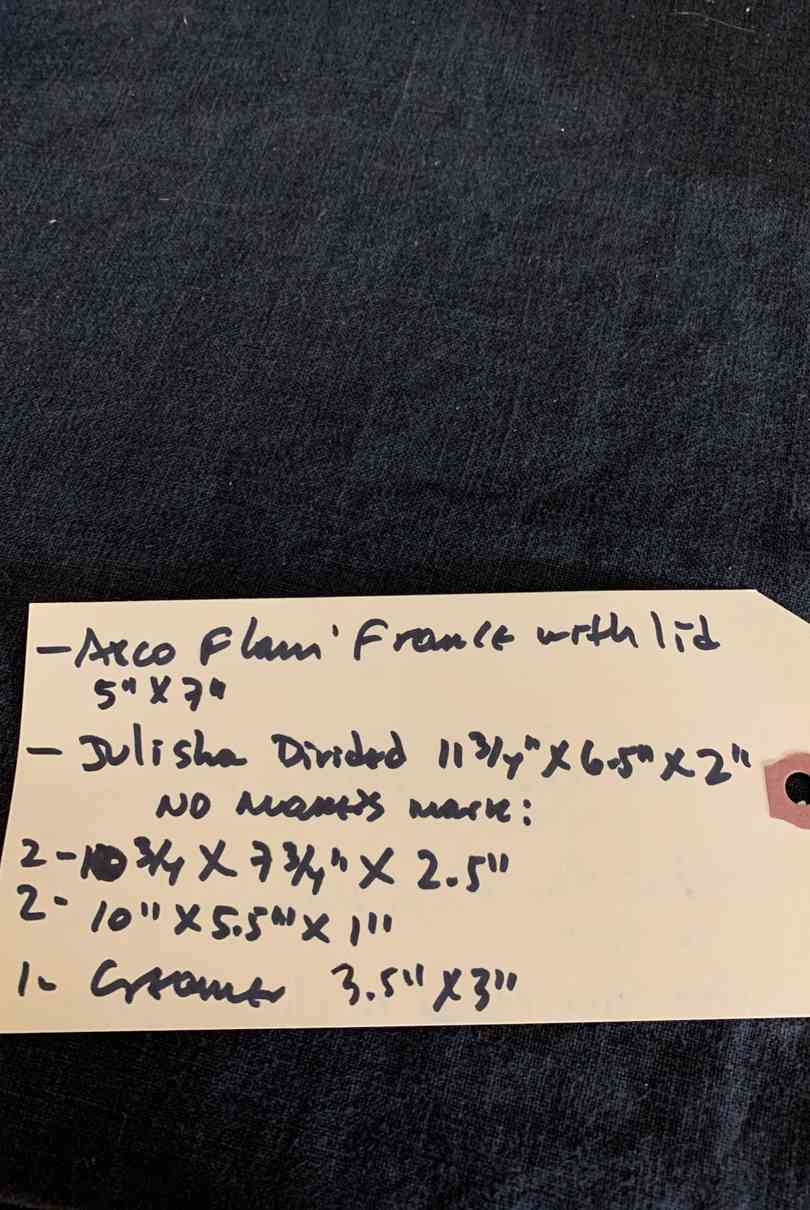 - Arco Flam' France with lid
5" X 7"
- Juliska Divided 11 3/4" X 6.5" X 2"
NO Maker's mark:
2 - 10 3/4 X 7 3/4" X 2.5"
2 - 10" X 5.5" X 1"
1 - Creamer 3.5" X 3"